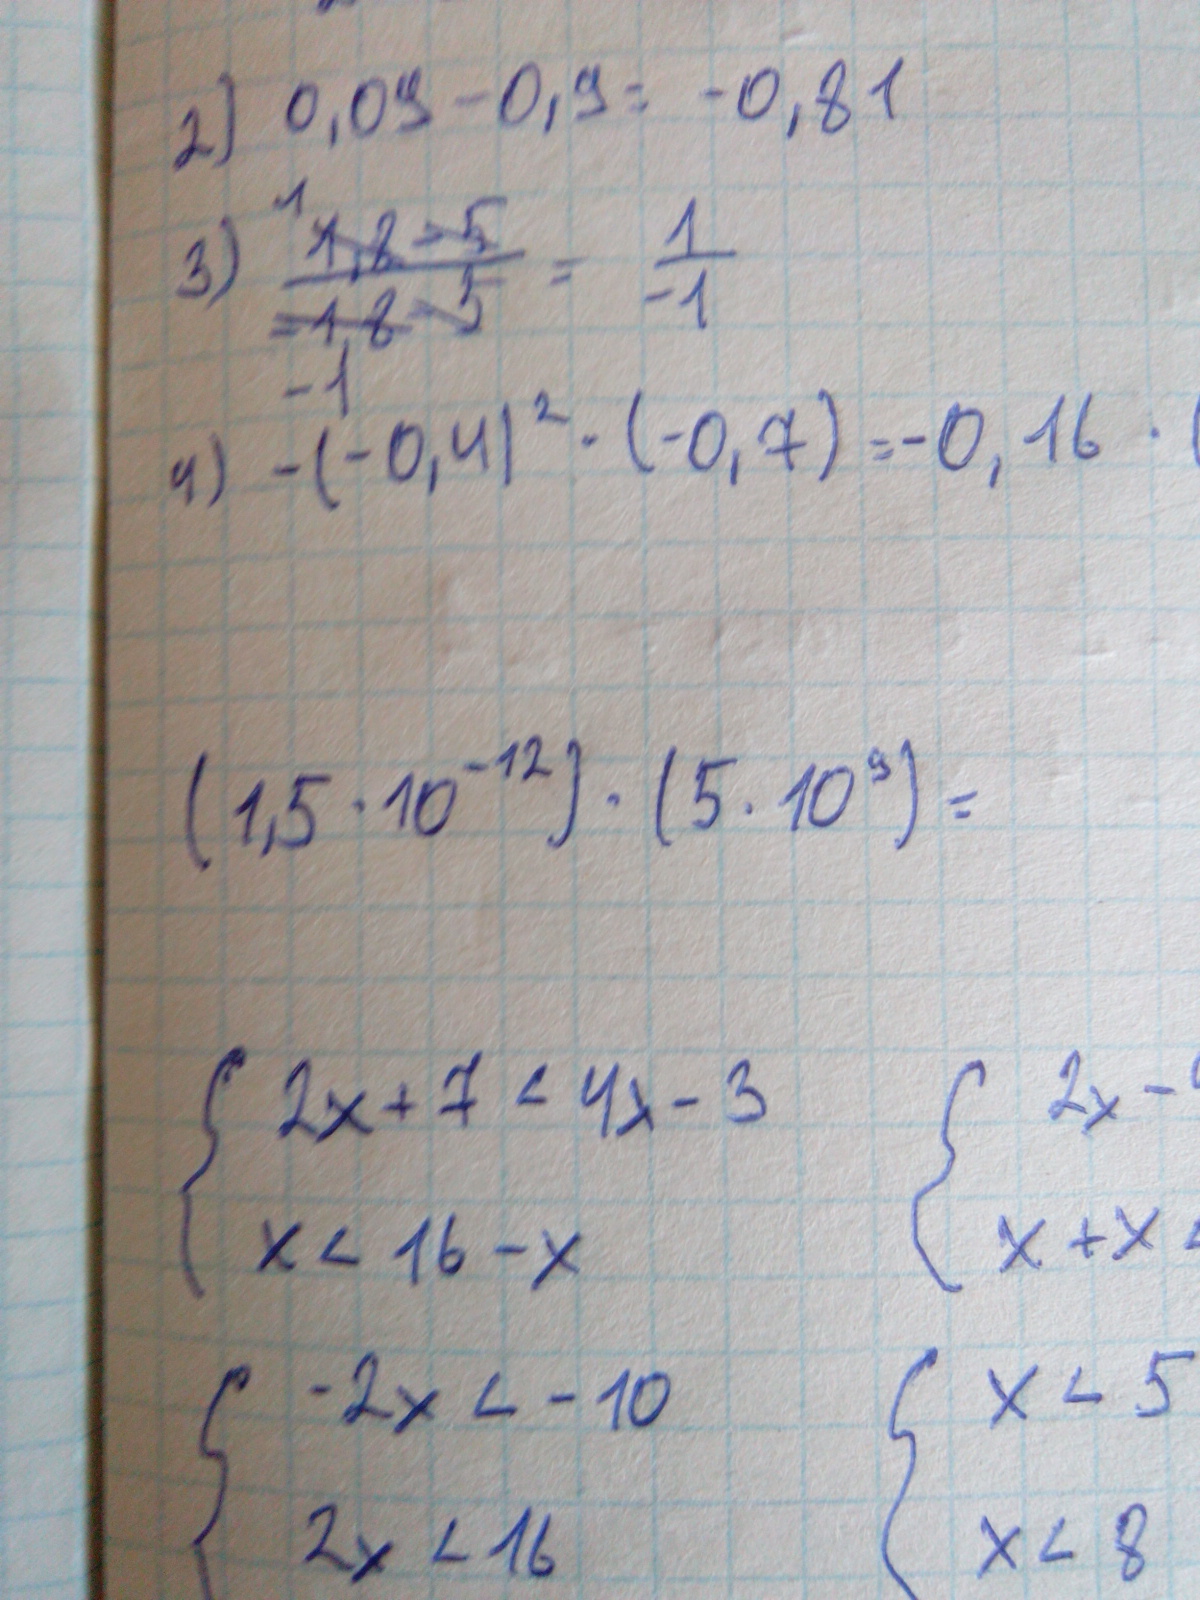 2) 0,09 - 0,9 = -0,81
3) 1 1,8 - 5 / -1,8 - 5 -1 = 1 / -1
4) -(-0,4)² · (-0,7) = -0,16 · (
(1,5 · 10⁻¹²) · (5 · 10⁹) =
{ 2x + 7 < 4x - 3 { 2x -
x < 16 - x x + x <
{ -2x < -10 { x < 5
2x < 16 x < 8